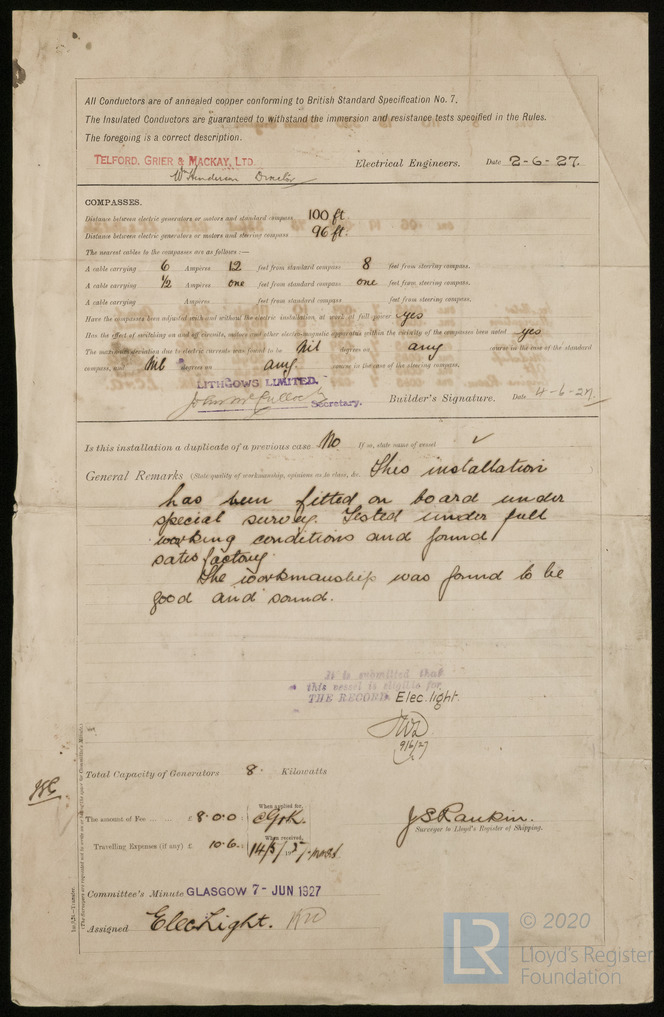 All Conductors are of annealed copper conforming to British Standard Specification No. 7.
The Insulated Conductors are guaranteed to withstand the immersion and resistance tests specified in the Rules.
The foregoing is a correct description.
TELFORD, GRIER & MACKAY, LTD.
Wm Henderson Director Electrical Engineers. Date 2-6-27.
COMPASSES.
Distance between electric generators or motors and standard compass 100 ft.
Distance between electric generators or motors and steering compass 96 ft.
The nearest cables to the compasses are as follows:—
A cable carrying 6 Ampères 12 feet from standard compass 8 feet from steering compass.
A cable carrying ½ Ampères one feet from standard compass one feet from steering compass.
A cable carrying Ampères feet from standard compass feet from steering compass.
Have the compasses been adjusted with and without the electric installation at work at full power yes
Has the effect of switching on and off circuits, motors and other electro-magnetic apparatus within the vicinity of the compasses been noted yes
The maximum deviation due to electric currents was found to be Nil degrees on any course in the case of the standard
compass, and Nil degrees on any course in the case of the steering compass.
LITHGOWS LIMITED.
Secretary. Builder's Signature. Date 4-6-27.
Is this installation a duplicate of a previous case No If so, state name of vessel ✓
General Remarks (State quality of workmanship, opinions as to class, &c. This installation
has been fitted on board under
special survey. Tested under full
working conditions and found
satisfactory.
The workmanship was found to be
good and sound.
It is submitted that
this vessel is eligible for
THE RECORD. Elec. light.
9/6/27
Total Capacity of Generators 8 Kilowatts
The amount of Fee £ 8.0.0 When applied for,
J S Rankin.
Surveyor to Lloyd's Register of Shipping.
Travelling Expenses (if any) £ 10.6. When received,
Committee's Minute GLASGOW 7 - JUN 1927
Assigned Elec Light.
LR © 2020
Lloyd's Register
Foundation